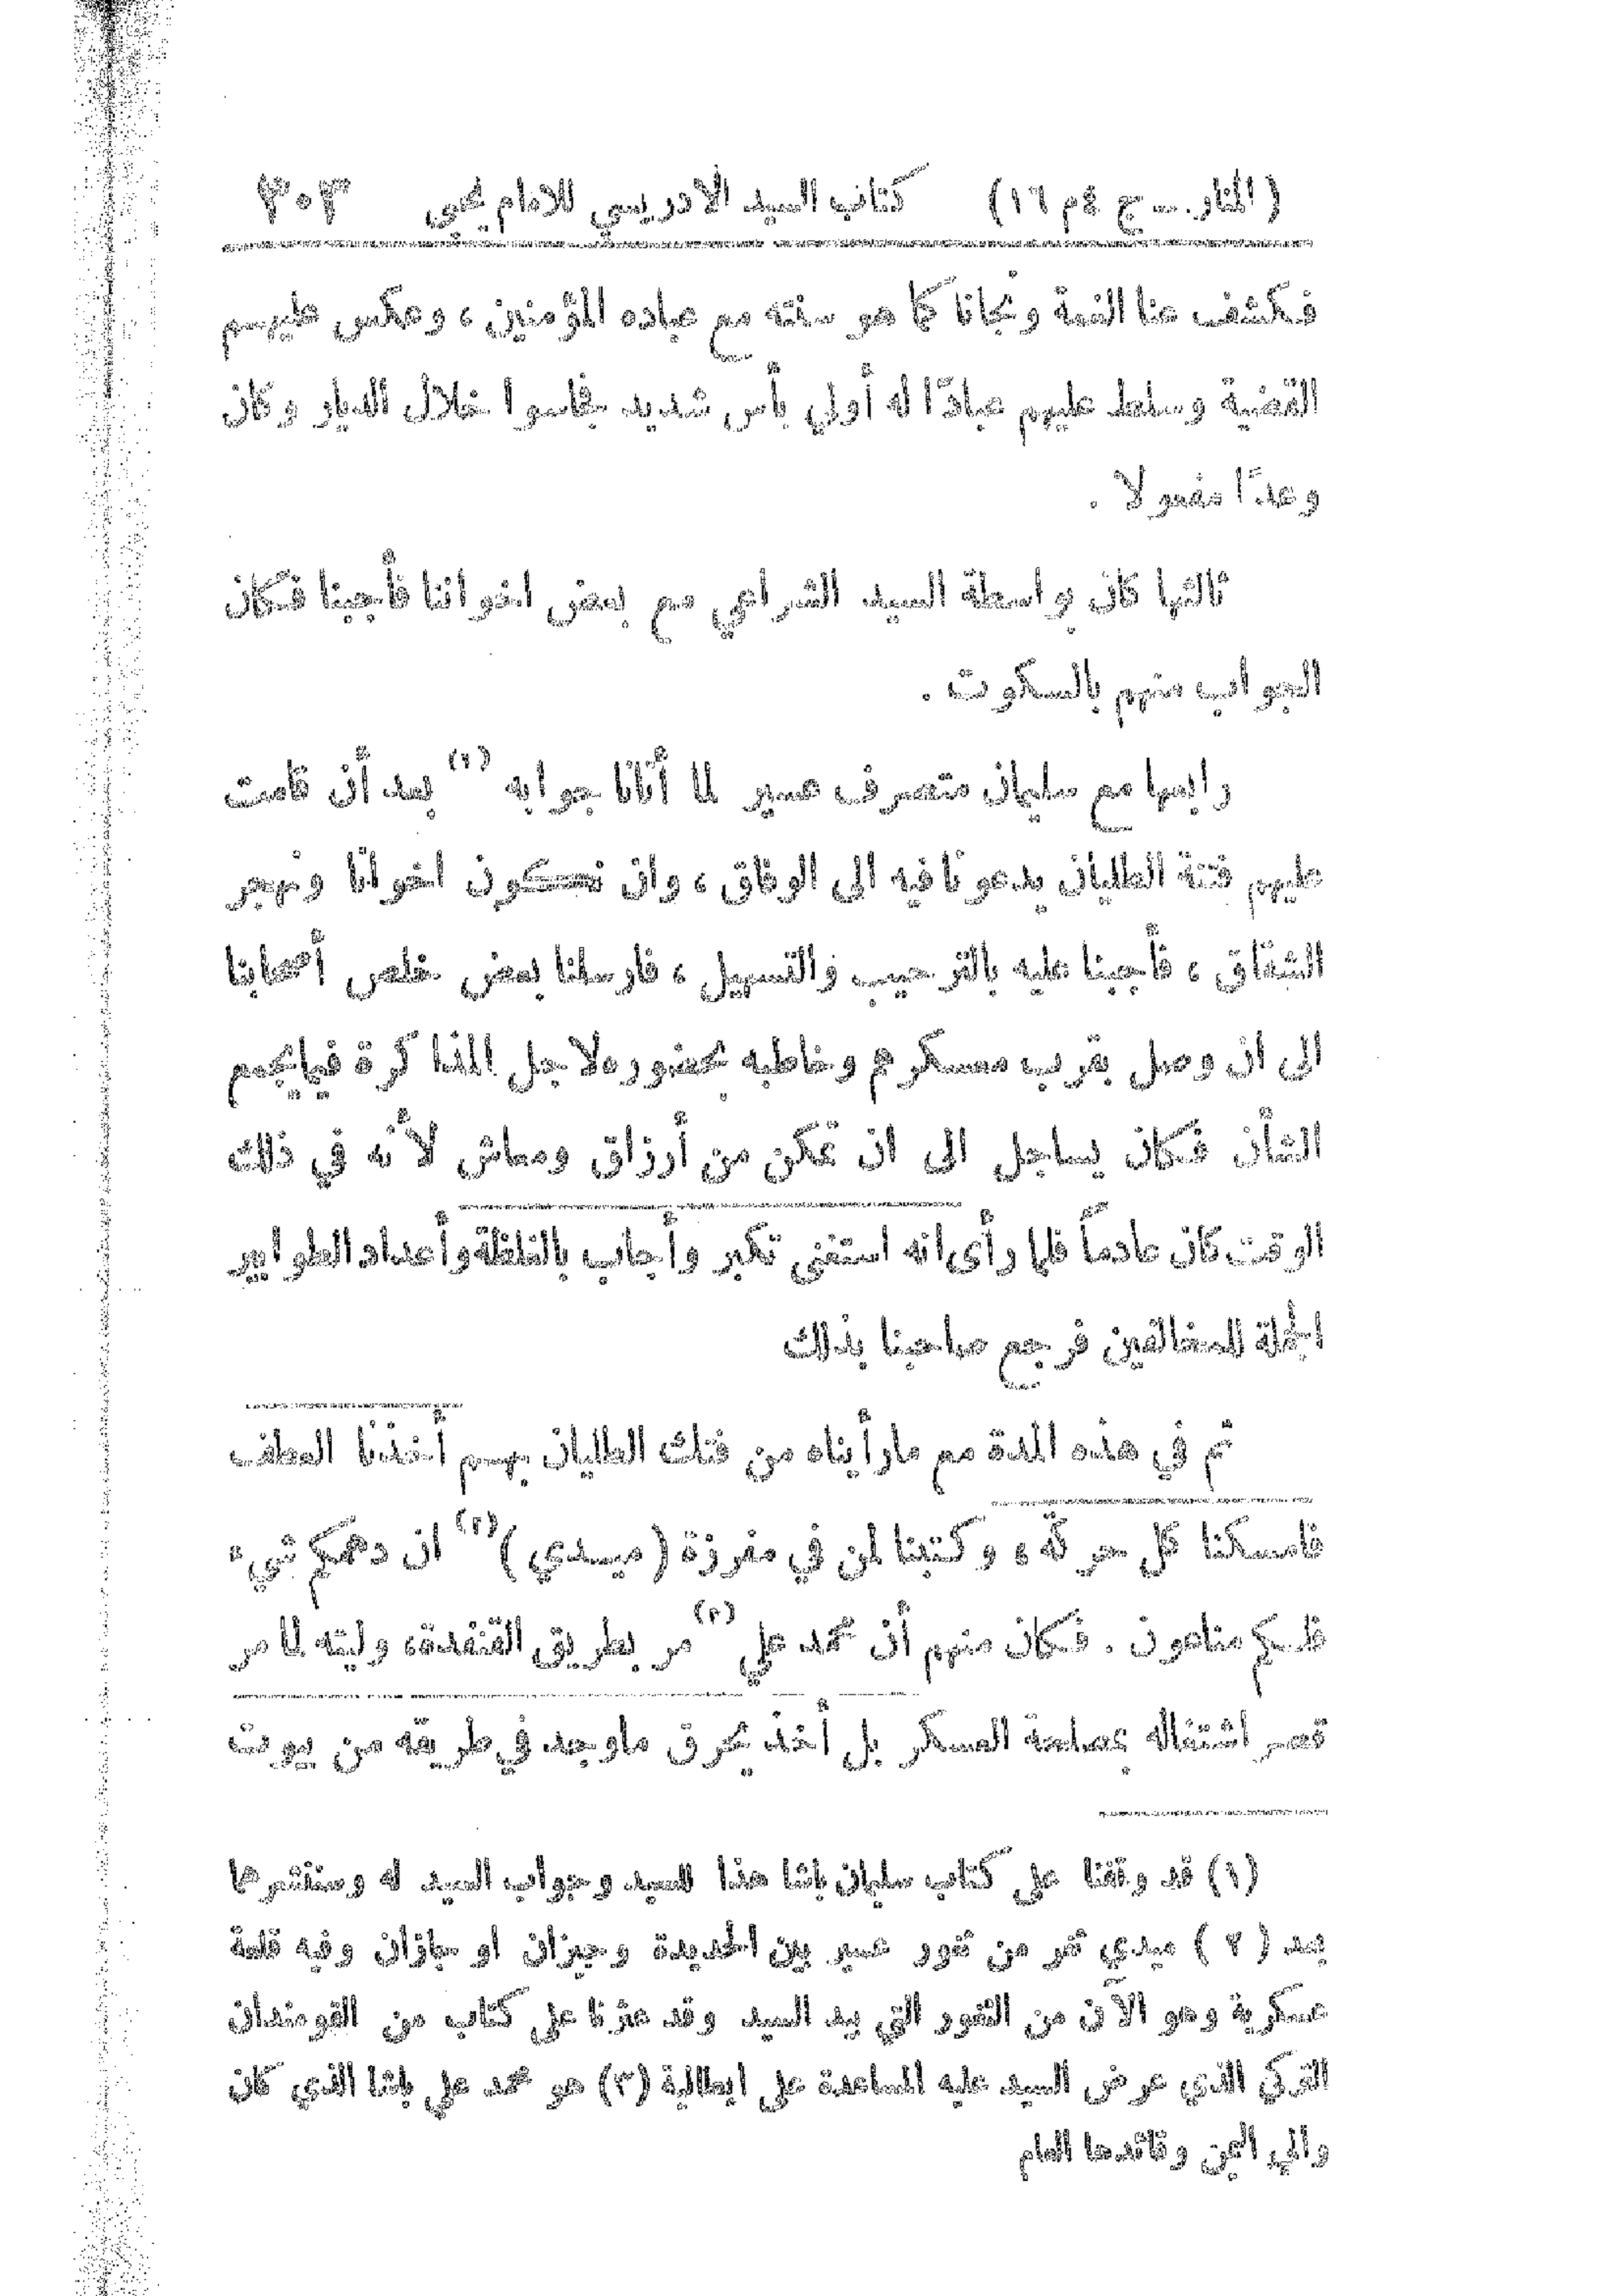 ( المنار ــ ج ٤ م ١٦ ) كتاب السيد الادريسي للامام يحيى ٣٠٣
فكشف عنا الغمة ونجانا كما هو سنته مع عباده المؤمنين ، وعكس عليهم
القضية وسلط عليهم عبادًا له أولي بأس شديد فجاسوا خلال الديار وكان
وعدًا مفعولا .
ثالثها كان بواسطة السيد الشراعي مع بعض اخواننا فأجبنا فكان
الجواب منهم بالسكوت .
رابعها مع سليمان متصرف عسير لما أتانا جوابه (١) بعد أن قامت
عليهم فتنة الطليان يدعونا فيه الى الوفاق ، وان نكون اخوانا ونهجر
الشقاق ، فأجبنا عليه بالترحيب والتسهيل ، فارسلنا بعض خلص أصحابنا
الى ان وصل بقرب معسكرهم وخاطبه بحضوره لاجل المذاكرة فيما يجمع
الشأن فكان يساجل الى ان تمكن من أرزاق ومعاش لأنه في ذلك
الوقت كان عادمًا فلما رأى انه استغنى تكبر وأجاب بالغلظة وأعداد الطوابير
الجملة للمخالفين فرجع صاحبنا بذلك
ثم في هذه المدة مع ما رأيناه من فتك الطليان بهم أخذنا العطف
فامسكنا كل حركة ، وكتبنا لمن في مفرزة ( ميدي ) (٢) ان دهمكم شيء
فلكم مناعون . فكان منهم أن محمد علي (٣) مر بطريق القنفدة ، وليته لما مر
قصر اشتغاله بمصلحة العسكر بل أخذ يحرق ما وجد في طريقه من بيوت
(١) قد وقفنا على كتاب سليمان باشا هذا للسيد وجواب السيد له وسننشرهما
بعد ( ٢ ) ميدي ثغر من ثغور عسير بين الحديدة وجيزان او جازان وفيه قلعة
عسكرية وهو الآن من الثغور التي بيد السيد وقد عثرنا على كتاب من القومندان
التركي الذي عرض السيد عليه المساعدة على ايطالية (٣) هو محمد علي باشا الذي كان
والي اليمن وقائدها العام